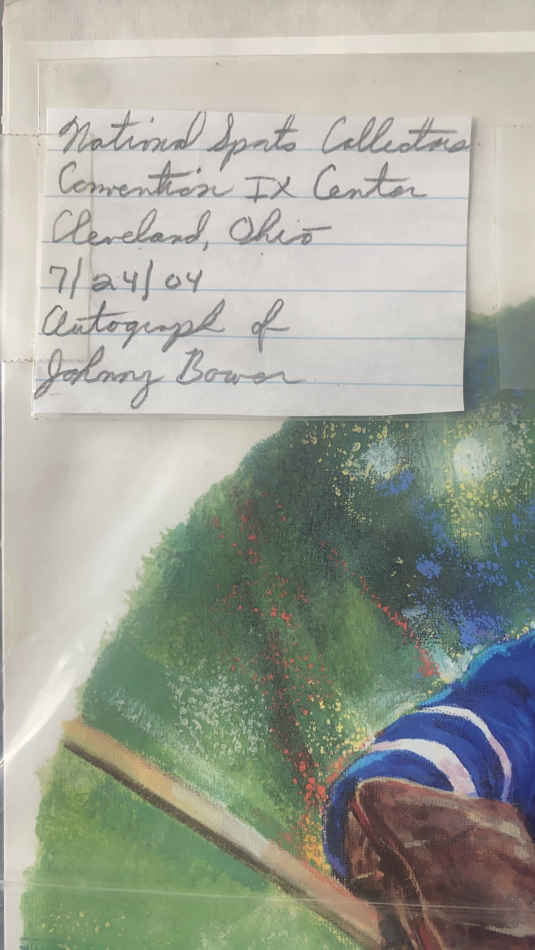 National Sports Collectors
Convention IX Center
Cleveland, Ohio
7/24/04
Autograph of
Johnny Bower